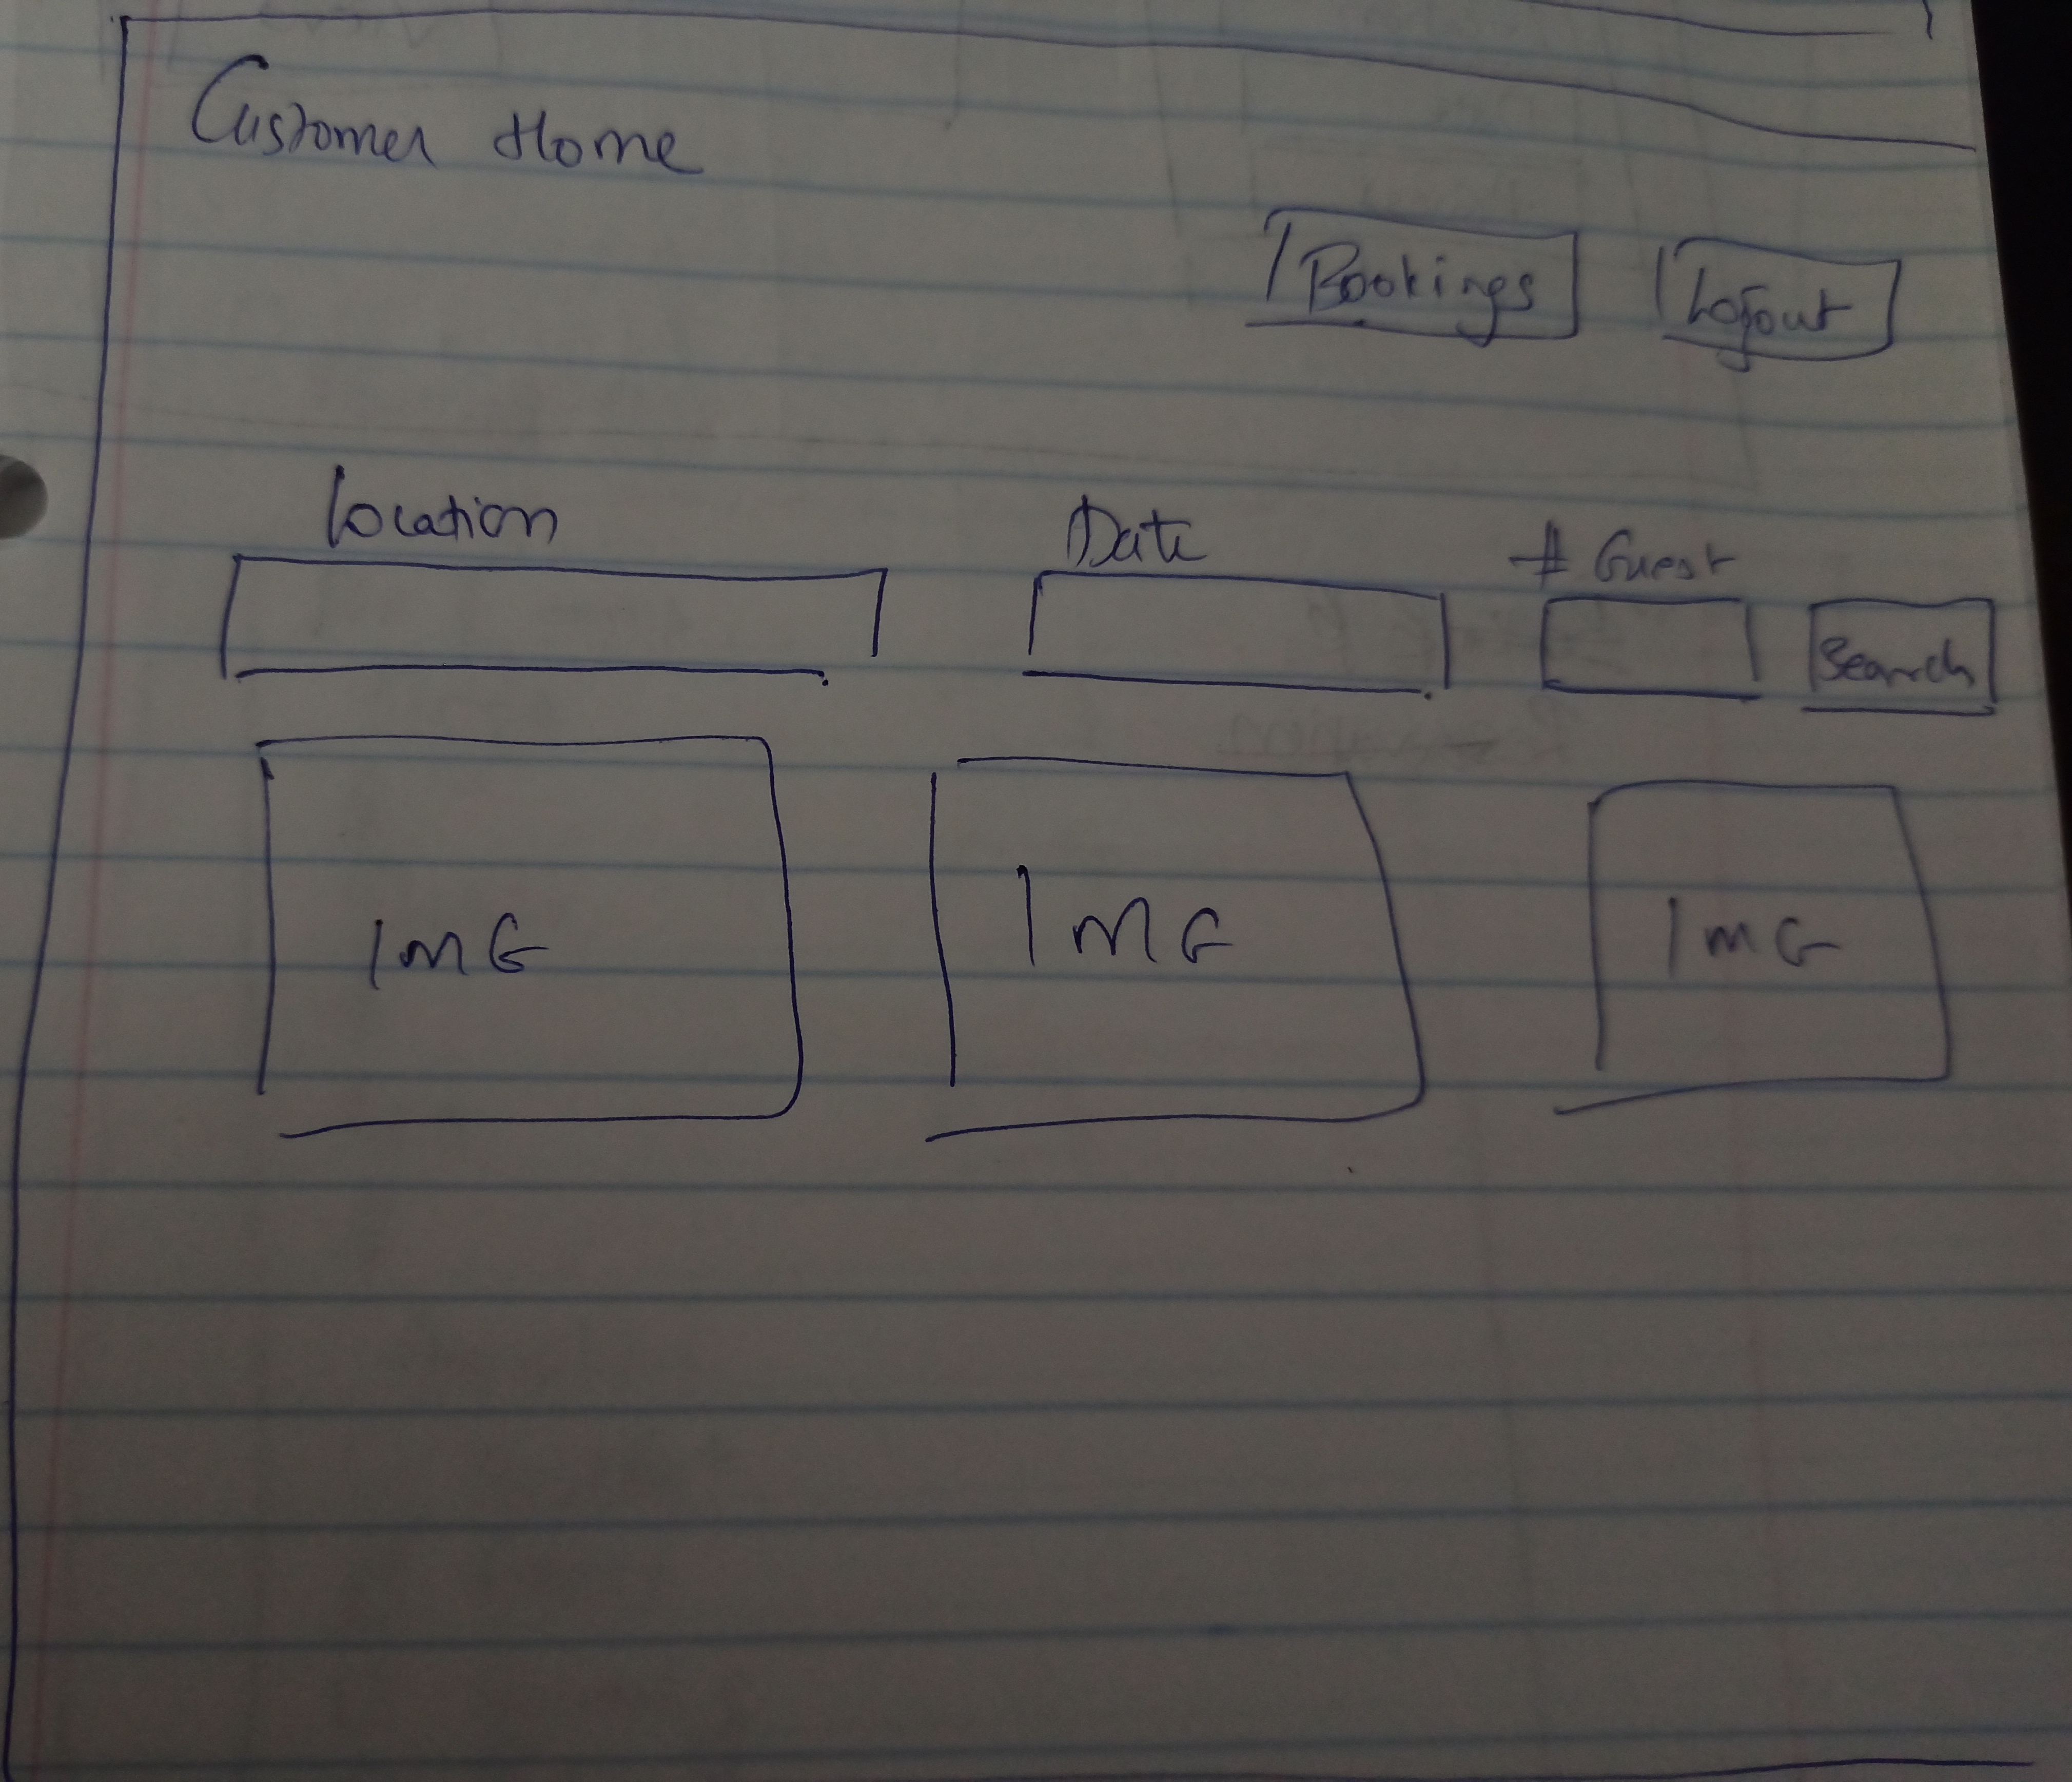 Customer Home
Bookings Logout
Location Date # Guest
Search
IMG IMG IMG